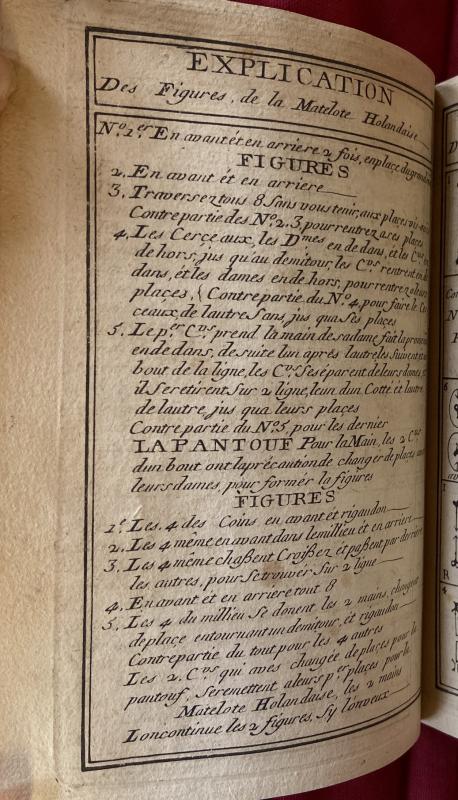 EXPLICATION
Des Figures, de la Matelote Holandaise
No. 1er En avant ét en arriere 2 fois, en place du grand
FIGURES
2. En avant ét en arriere
3. Traversez tous 8 Sans vous tenir, aux places vis
Contre partie des No. 2. 3, pour rentrez a ses places
4. Les Cerçeaux, les Dmes en de dans, ét les Cvrs
de hors, jus qu'au demitour, les Cvrs rentrent en
dans, ét les dames en de hors, pour rentrez a leurs
places, { Contre partie du No. 4, pour faire le Cer
ceaux, de lautre Sans, jus qua Sés places
5. Le per Cvrs prend la main de sa dame, fait la
en de dans, de suite lun aprés lautre, les Suivent
bout de la ligne, les Cvrs Se séparent de leurs dames,
il Se retirent Sur 2 ligne, lun dun Cotté ét lautre
de lautre, jus qua leurs places
Contre partie du No. 5, pour les dernier
LA PANTOUF Pour la Main, les 2 Cvrs
dun bout ont la précaution de changer de places
leurs dames, pour former la figures
FIGURES
1e. Les 4 des Coins en avant ét rigaudon
2. Les 4 même, en avant dans le millieu ét en arriere
3. Les 4 même chaßent Croißez ét paßent par derriere
les autres, pour Se trouvér Sur 2 ligne
4. En avant ét en arriere tout 8
5. Les 4 du millieu Se donent les 2 mains, changent
de plaçe en tournant un demitour, ét rigaudon
Contre partie du tout pour les 4 autres
Les 2 Cvrs qui aves changée de places pour le
pantouf, Se remettent a leurs per places pour le
Matelote Holandaise, les 2 mains
Lon continue les 2 figures, Sy lon veux